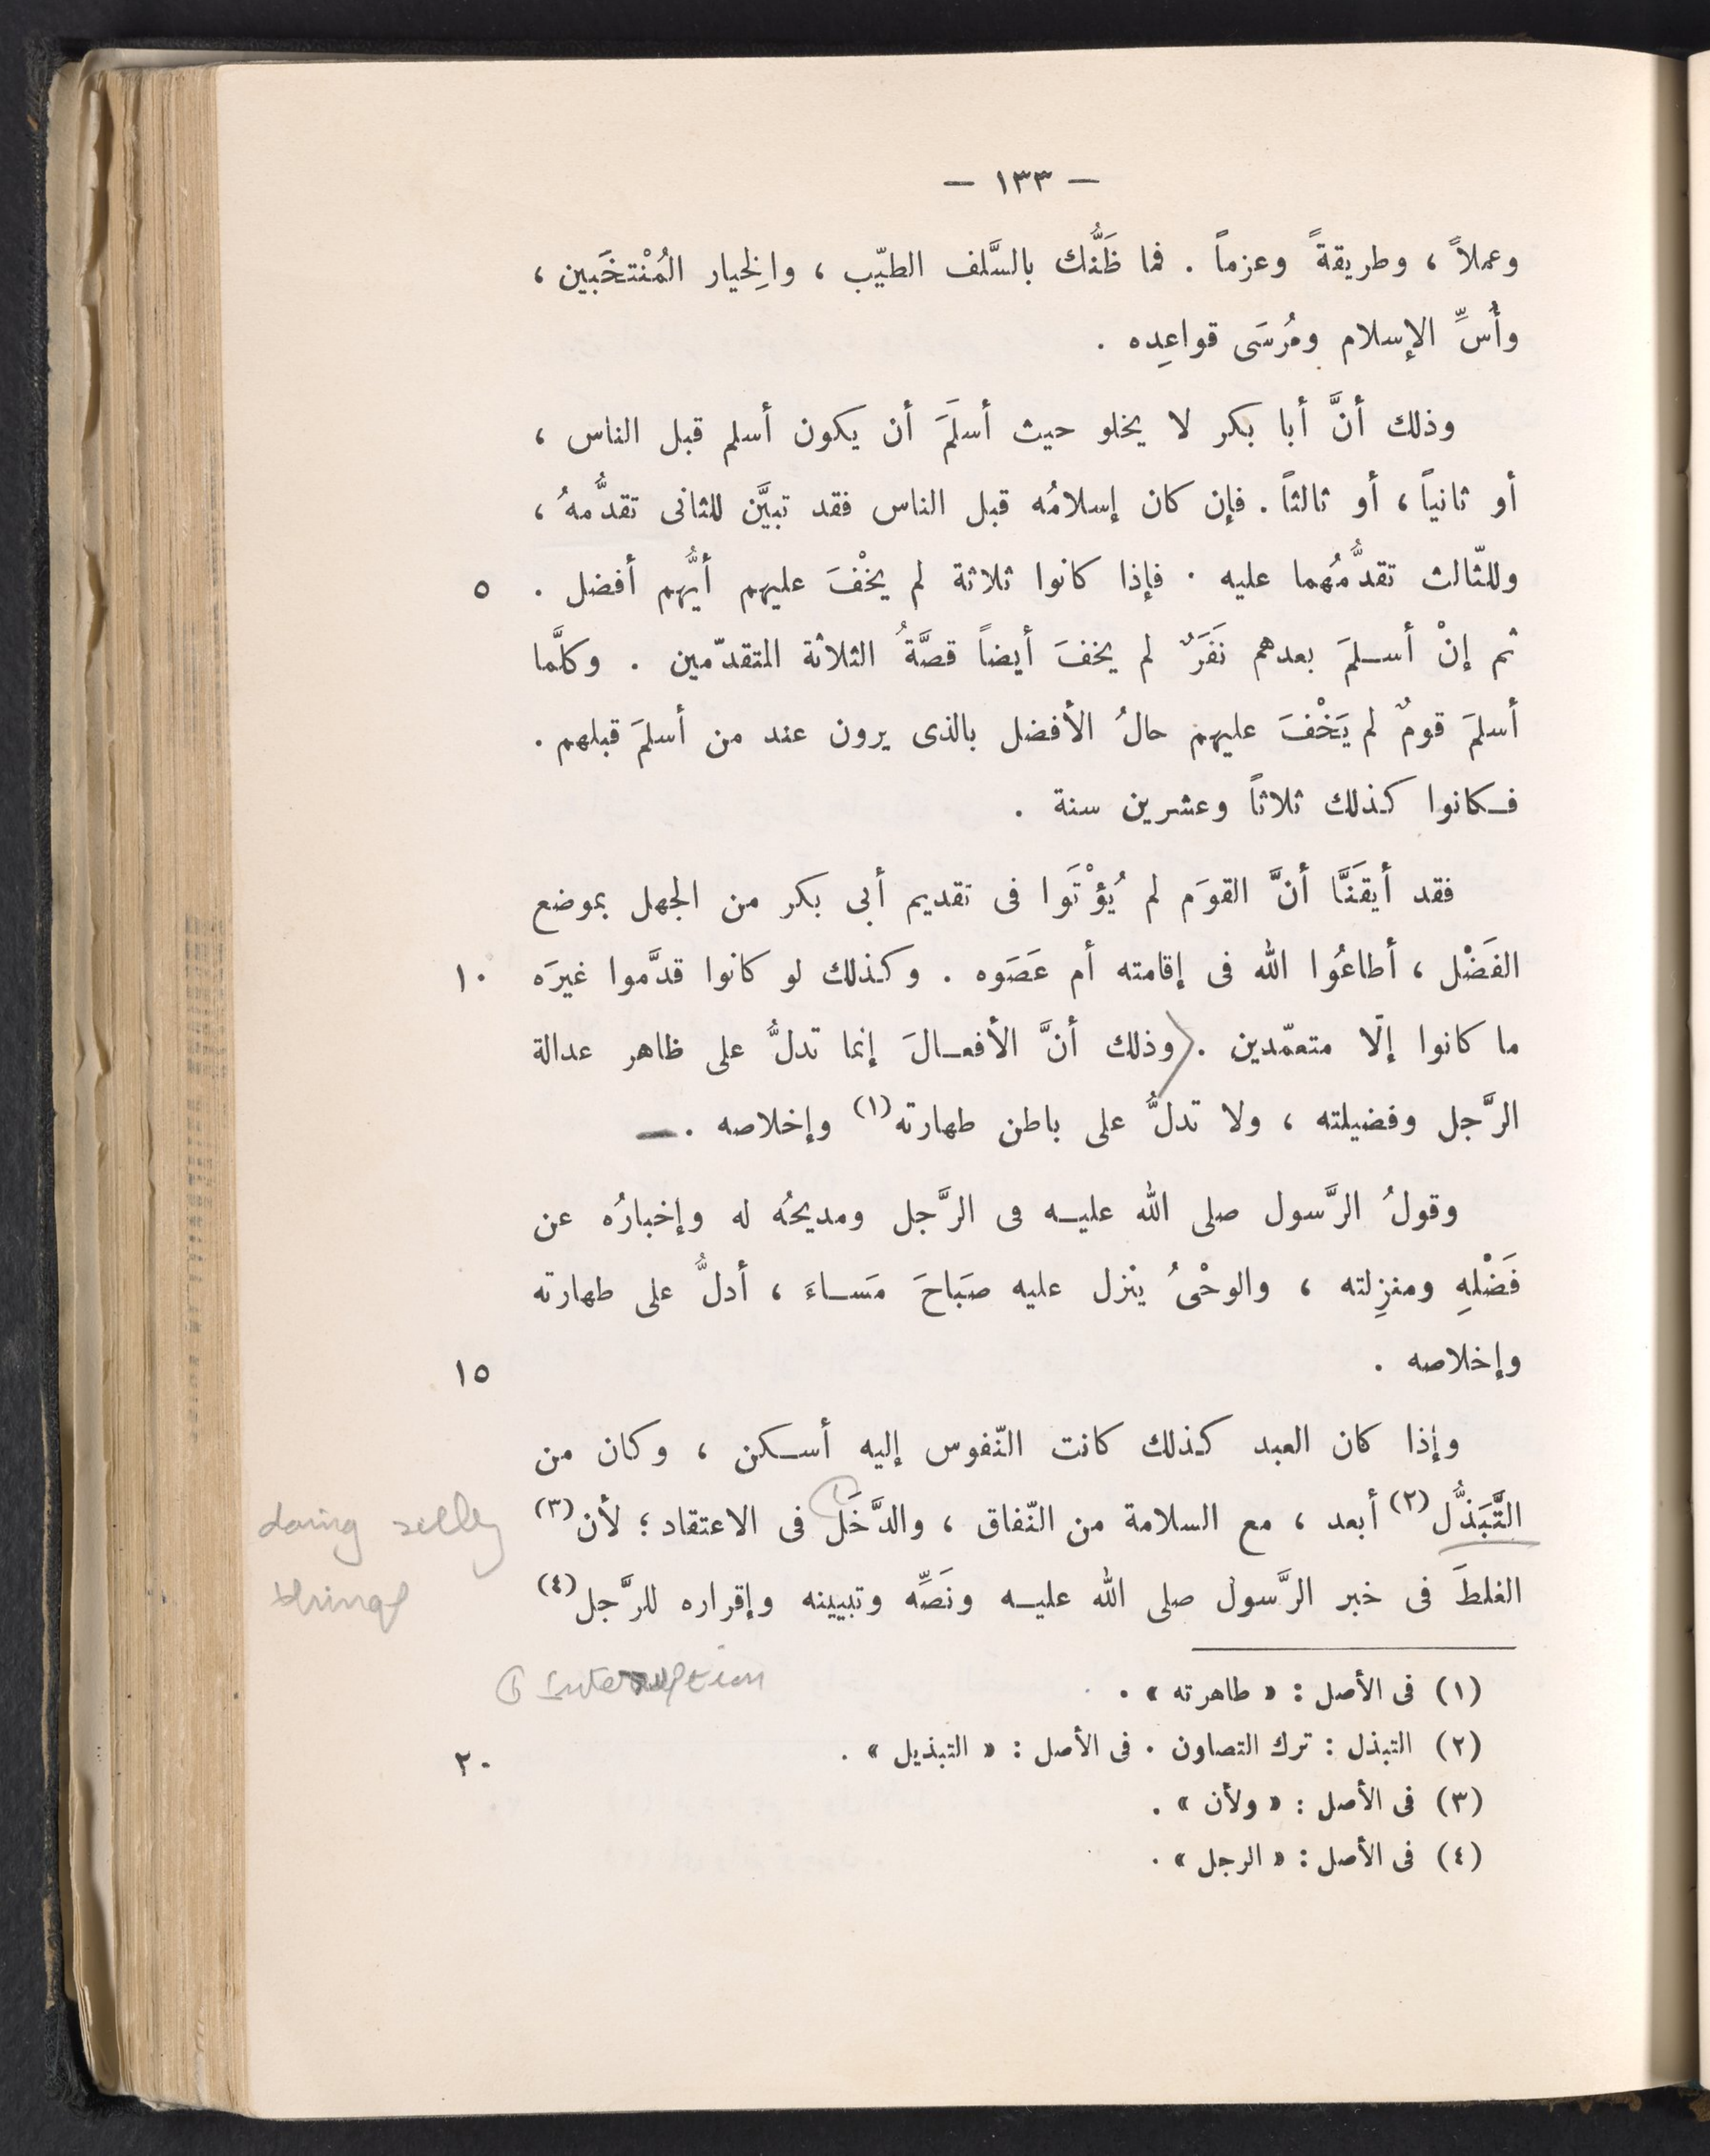 — ١٣٣ —
وعملاً ، وطريقةً وعزماً . فما ظَنُّك بالسَّلف الطيّب ، والخِيار المُنْتخَبين ،
وأُسِّ الإسلام ومُرسَى قواعِدِه .
وذلك أنَّ أبا بكر لا يخلو حيث أسلَمَ أن يكون أسلم قبل الناس ،
أو ثانياً ، أو ثالثاً . فإن كان إسلامُه قبل الناس فقد تبيَّن للثانى تقدُّمهُ ،
وللثّالث تقدُّمُهما عليه . فإذا كانوا ثلاثة لم يخْفَ عليهم أيُّهم أفضل . ٥
ثم إنْ أسلمَ بعدهم نَفَرٌ لم يخفَ أيضاً قصَّةُ الثلاثة المتقدّمين . وكلَّما
أسلمَ قومٌ لم يَخْفَ عليهم حالُ الأفضل بالذى يرون عند من أسلمَ قبلهم .
فكانوا كذلك ثلاثاً وعشرين سنة .
فقد أيقَنَّا أنَّ القومَ لم يُؤْتَوا فى تقديم أبى بكر من الجهل بموضع
الفَضْل ، أطاعُوا الله فى إقامته أم عَصَوه . وكذلك لو كانوا قدَّموا غيرَه ١٠
ما كانوا إلّا متعمّدين . وذلك أنَّ الأفعالَ إنما تدلُّ على ظاهر عدالة
الرَّجل وفضيلته ، ولا تدلُّ على باطن طهارته (١) وإخلاصه .
وقولُ الرَّسول صلى الله عليه فى الرَّجل ومديحُه له وإخبارُه عن
فَضْلهِ ومنزِلته ، والوحْىُ ينزل عليه صبَاحَ مَساءَ ، أدلُّ على طهارته
وإخلاصه . ١٥
وإذا كان العبد كذلك كانت النّفوس إليه أسكن ، وكان من
التَّبَذُّل (٢) أبعد ، مع السلامة من النّفاق ، والدَّخَل فى الاعتقاد ؛ لأن (٣)
doing silly
الغلطَ فى خبر الرَّسول صلى الله عليه ونَصِّه وتبيينه وإقراره للرَّجل (٤)
things
(١) فى الأصل : « طاهرته » .
① Interruption
(٢) التبذل : ترك التصاون . فى الأصل : « التبذيل » . ٢٠
(٣) فى الأصل : « ولأن » .
(٤) فى الأصل : « الرجل » .